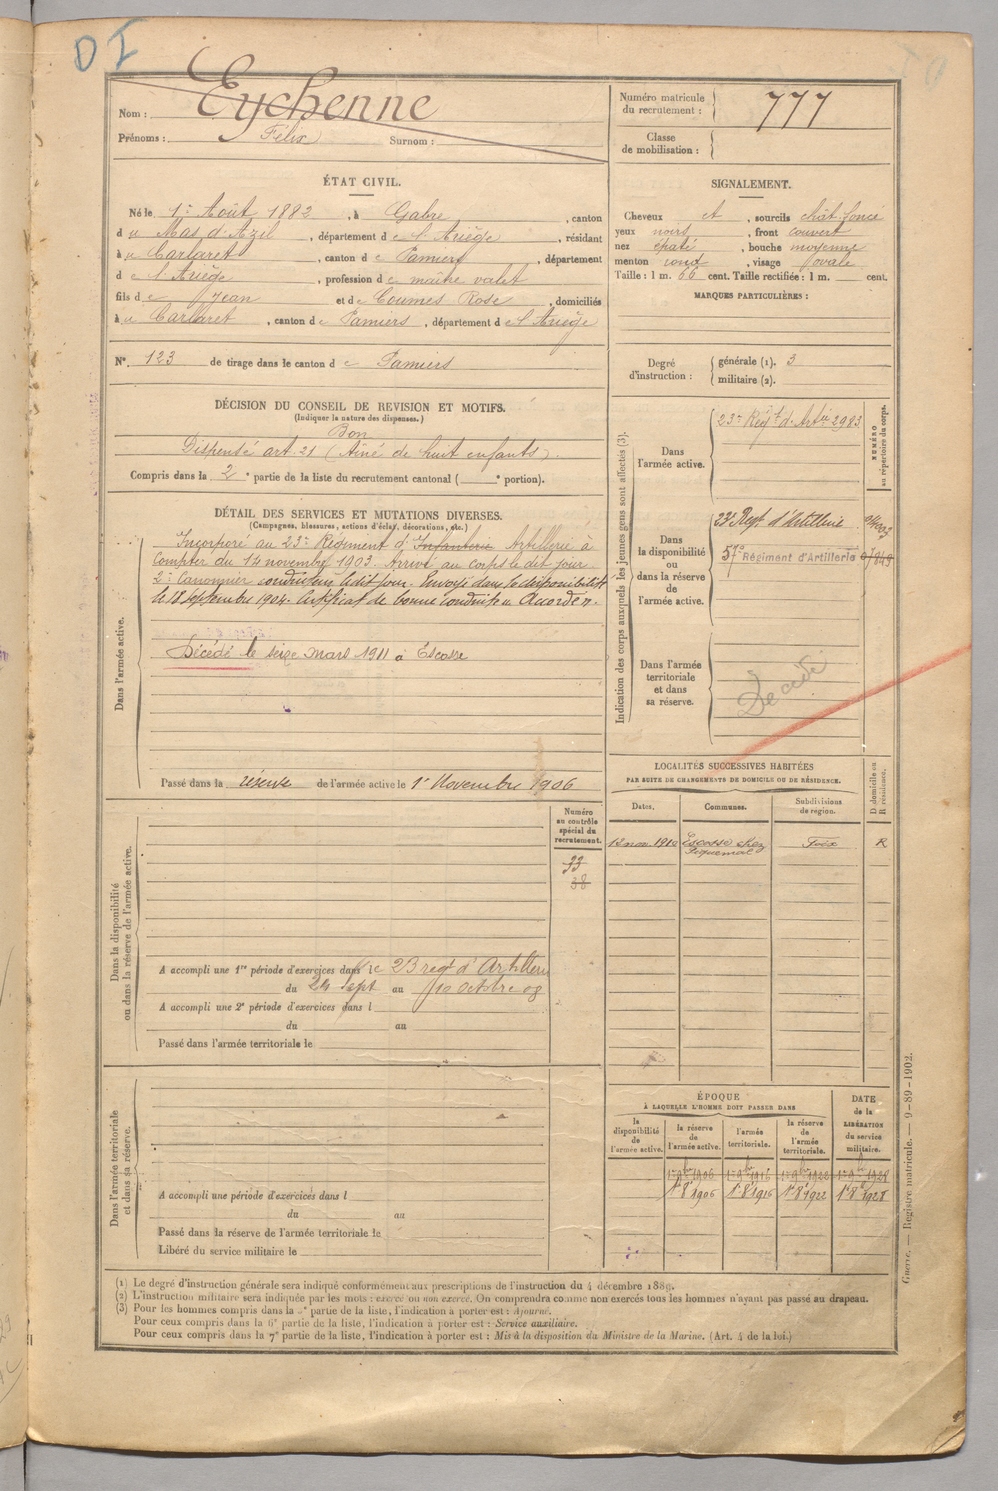 DI
Nom : Eychenne
Prénoms : Félix Surnom :
Numéro matricule du recrutement : 777
Classe de mobilisation :
ÉTAT CIVIL.
Né le 1er Août 1882, à Gabre, canton
du Mas d'Azil, département de l'Ariège, résidant
à u Carlaret, canton de Pamiers, département
de l'Ariège, profession de maître valet
fils de Jean et de Coumes Rose, domiciliés
à u Carlaret, canton de Pamiers, département de l'Ariège
N° 123 de tirage dans le canton de Pamiers
SIGNALEMENT.
Cheveux et, sourcils chât. foncé
yeux noirs, front couvert
nez épaté, bouche moyenne
menton rond, visage ovale
Taille : 1 m. 66 cent. Taille rectifiée : 1 m. cent.
MARQUES PARTICULIÈRES :
Degré d'instruction : générale (1). 3
militaire (2).
DÉCISION DU CONSEIL DE REVISION ET MOTIFS.
(Indiquer la nature des dispenses.)
Bon
Dispensé art. 21 (Aîné de huit enfants).
Compris dans la 2e partie de la liste du recrutement cantonal ( e portion).
DÉTAIL DES SERVICES ET MUTATIONS DIVERSES.
(Campagnes, blessures, actions d'éclat, décorations, etc.)
Dans l'armée active.
Incorporé au 23e Régiment d'Infanterie Artillerie à
compter du 14 novembre 1903. Arrivé au corps le dit jour.
2e Canonnier conducteur ledit jour. Envoyé dans la disponibilité
le 18 septembre 1904. Certificat de bonne conduite "Accordé".
Décédé le seize mars 1911 à Escosse
Passé dans la réserve de l'armée active le 1er Novembre 1906
Indication des corps auxquels les jeunes gens sont affectés (3).
NUMÉRO au répertoire du corps.
Dans l'armée active.
23e Régt d'Artie 2983
Dans la disponibilité ou dans la réserve de l'armée active.
23e Régt d'Artillerie
57e Régiment d'Artillerie
Dans l'armée territoriale et dans sa réserve.
Décédé
LOCALITÉS SUCCESSIVES HABITÉES
PAR SUITE DE CHANGEMENTS DE DOMICILE OU DE RÉSIDENCE.
Dates. Communes. Subdivisions de région. D domicile ou R résidence.
13 nov. 1910 Escosse chez Piquemal Foix R
Dans la disponibilité ou dans la réserve de l'armée active.
Numéro au contrôle spécial du recrutement.
33
38
A accompli une 1re période d'exercices dans le 23 regt d'Artillerie
du 24 sept au 10 octobre 08
A accompli une 2e période d'exercices dans l
du au
Passé dans l'armée territoriale le
Dans l'armée territoriale et dans sa réserve.
A accompli une période d'exercices dans l
du au
Passé dans la réserve de l'armée territoriale le
Libéré du service militaire le
ÉPOQUE
À LAQUELLE L'HOMME DOIT PASSER DANS
DATE de la LIBÉRATION du service militaire.
la disponibilité de l'armée active. la réserve de l'armée active. l'armée territoriale. la réserve de l'armée territoriale.
1er 9bre 1906 1er 9bre 1916 1er 9bre 1922 1er 9bre 1928
1er 8bre 1906 1er 8bre 1916 1er 8bre 1922 1er 8bre 1928
(1) Le degré d'instruction générale sera indiqué conformément aux prescriptions de l'instruction du 4 décembre 1889.
(2) L'instruction militaire sera indiquée par les mots : exercé ou non exercé. On comprendra comme non exercés tous les hommes n'ayant pas passé au drapeau.
(3) Pour les hommes compris dans la 4e partie de la liste, l'indication à porter est : Ajourné.
Pour ceux compris dans la 6e partie de la liste, l'indication à porter est : Service auxiliaire.
Pour ceux compris dans la 7e partie de la liste, l'indication à porter est : Mis à la disposition du Ministre de la Marine. (Art. 4 de la loi.)
Guerre. — Registre matricule. — 9-89-1902.